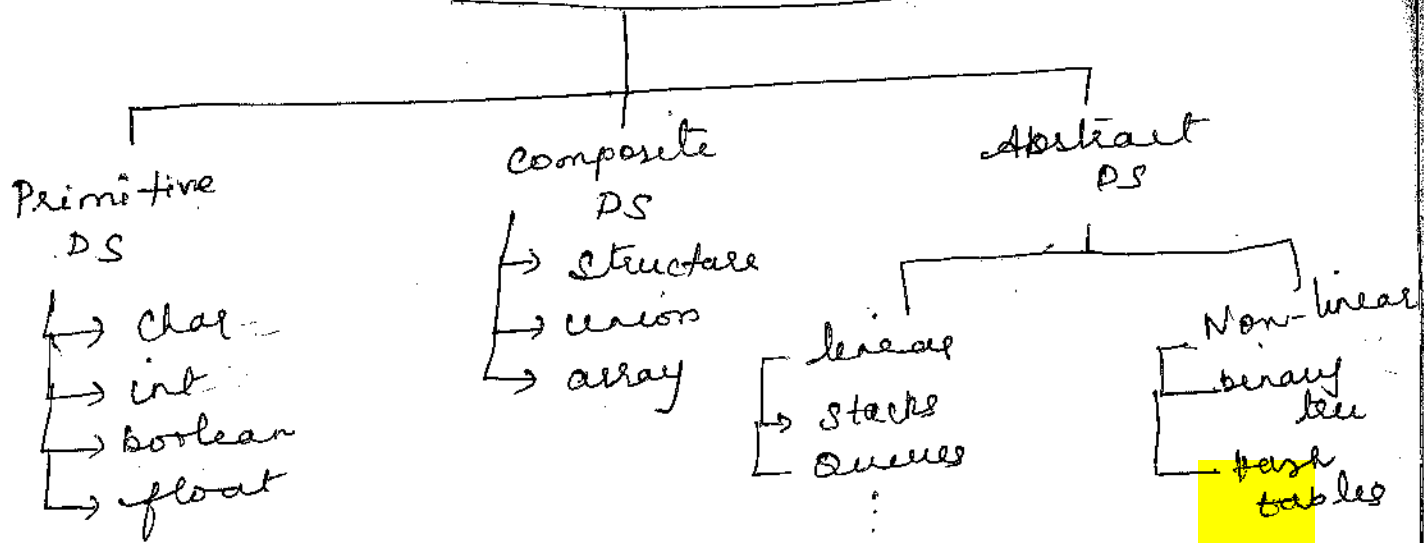 Primitive
DS
char
int
boolean
float
Composite
DS
structure
union
array
Abstract
DS
linear
stacks
Queues
Non-linear
binary
tree
Hash
tables